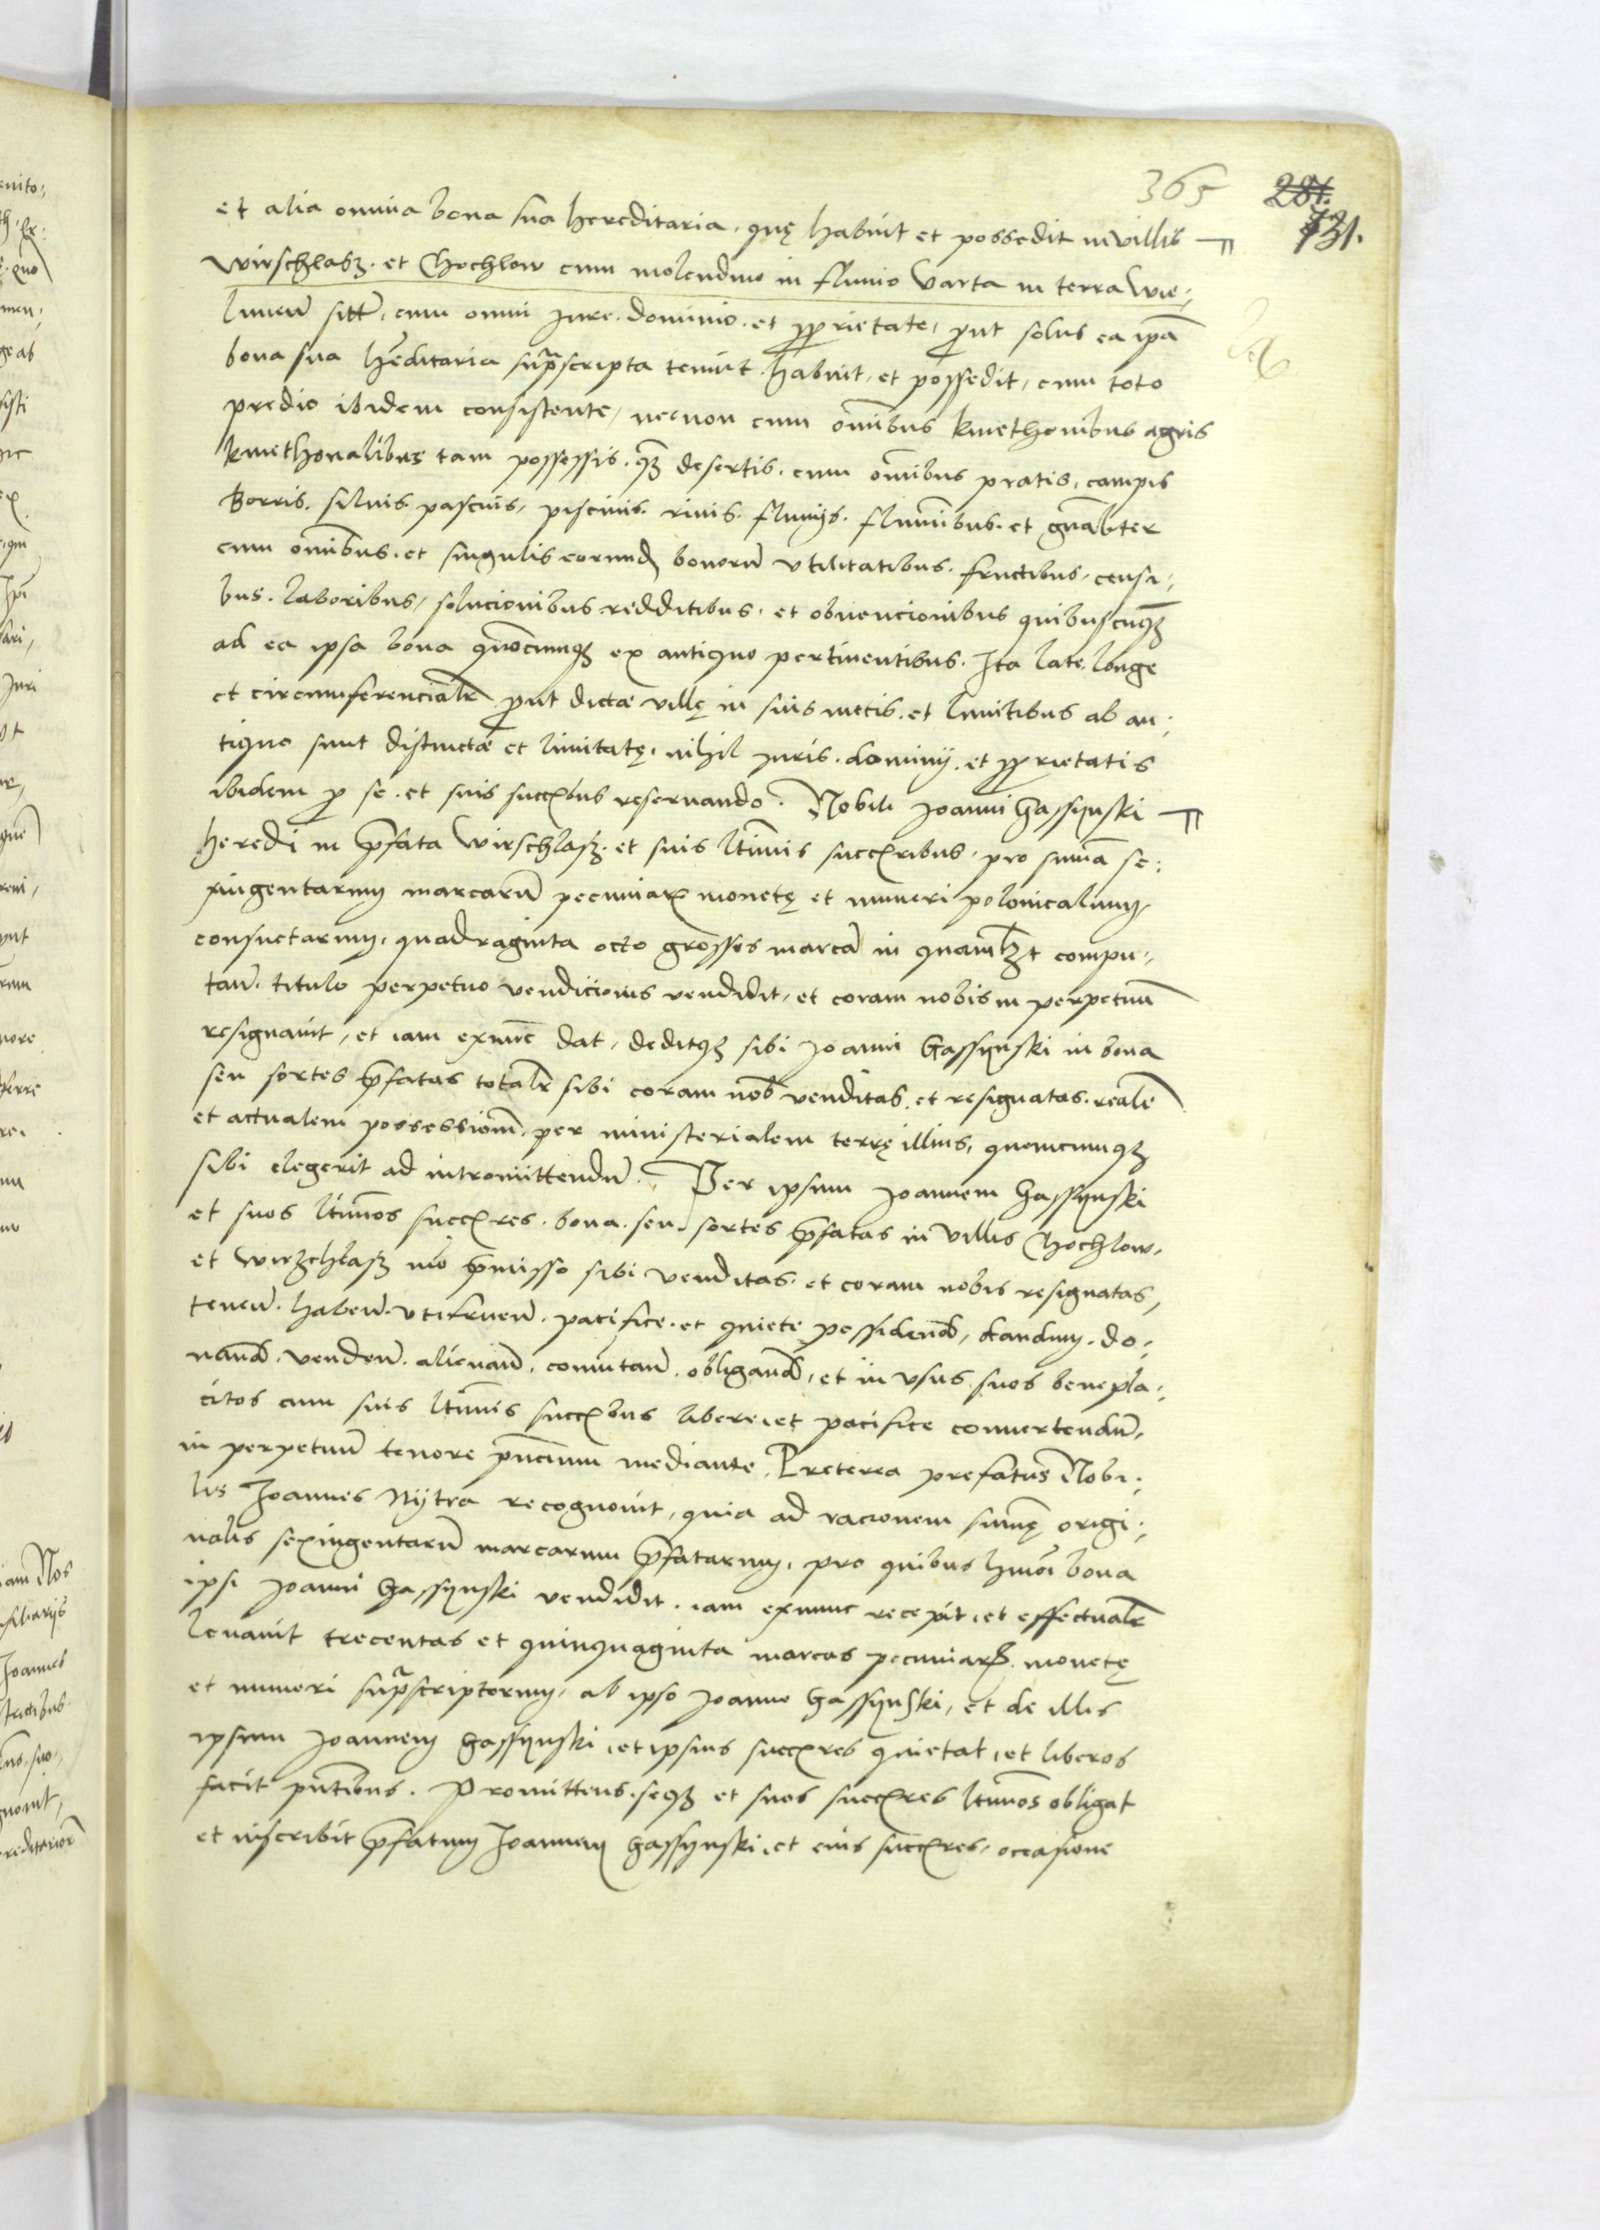 365 281. 731.
et alia omnia bona sua hereditaria, quę habuit et possedit in villis
Wirschlasz. et Chochlow cum molendino in fluuio Varta in terra Wie-
lunen̄ sitt̄, cum omni iure. dominio. et ꝓprietate, ꝓut solus ea ip̄a
bona sua her̄editaria sup̄rascripta tenuit. habuit, et possedit, cum toto
predio ibidem consistente, necnon cum om̄ibus kmethonibus agris
kmethonalibus tam possessis. q̄ꝫ desertis. cum om̄ibus pratis, campis
Borris. siluis. pascuis, piscinis. riuis. fluuijs. flumīnibus. et gn̄aliter
cum om̄ibus. et singulis eorund̄ bonorū vtilitatibus. fructibus, censi-
bus. laboribus, solucionibus redditibus. et obuencionibus quibuscūqꝫ
ad ea ipsa bona quōcumqꝫ ex antiquo pertinentibus. Ita late. longe
et circumferencialr̄ ꝓut dictae villę in suis metis. et limitibus ab an-
tiquo sunt distinctae et limitatę, nihil iuris. dominij. et ꝓprietatis
ibidem ꝓ se. et suis succr̄ibus reseruando. Nobili Joanni Gassijnski
heredi in p̄fata Wirschlasz. et suis ltīmis succr̄ribus, pro summa se-
xingentarum marcarū pecuniarꝫ monetę et numeri polonicalium,
consuetarum, quadraginta octo grossos marcā in quamlꝫt compu-
tan̄. titulo perpetuo vendicionis vendidit, et coram nobis in perpetuū
resignauit, et iam exnūc dat, deditqꝫ sibi Joanni Gassijnski in bona
seu sortes p̄fatas totalr̄ sibi coram nob̄ venditas. et resignatas. realē
et actualem possessionē, per ministerialem terrę illius, quemcumqꝫ
sibi elegerit ad intromittendū. Per ipsum Joannem Gassijnski
et suos ltīmos succr̄res. bona. seu sortes p̄fatas in villis Chochlow,
et Wirzchlasz mō p̄misso sibi venditas. et coram nobis resignatas,
tenen̄. haben̄. vtifruen̄. pacifice. et quiete possidend̄, dandum. do-
nand̄. venden̄. alienan̄. comutan̄. obligand̄, et in vsus suos benepla-
citos cum suis ltīmis succr̄ibus libere. et pacifice conuertendū,
in perpetuū tenore pn̄cium mediante. Preterea prefatus Nobi-
lis Joannes Nijtra recognouit, quia ad racionem summę origi-
nalis sexingentarū marcarum p̄fatarum, pro quibus hmōi bona
ipsi Joanni Gassijnski vendidit. iam exnunc recepit. et effectualr̄
leuauit trecentas et quinquaginta marcas pecuniarꝫ. monetę
et numeri sup̄rascriptorum, ab ipso Joanne Gassijnski, et de illis
ipsum Joannem Gassijnski, et ipsius succr̄res quietat, et liberos
facit pn̄tibus. Promittens. seqꝫ et suos succr̄res ltīmos obligat
et inscribit p̄fatum Joannem Gassijnski, et eius succr̄res, occasione